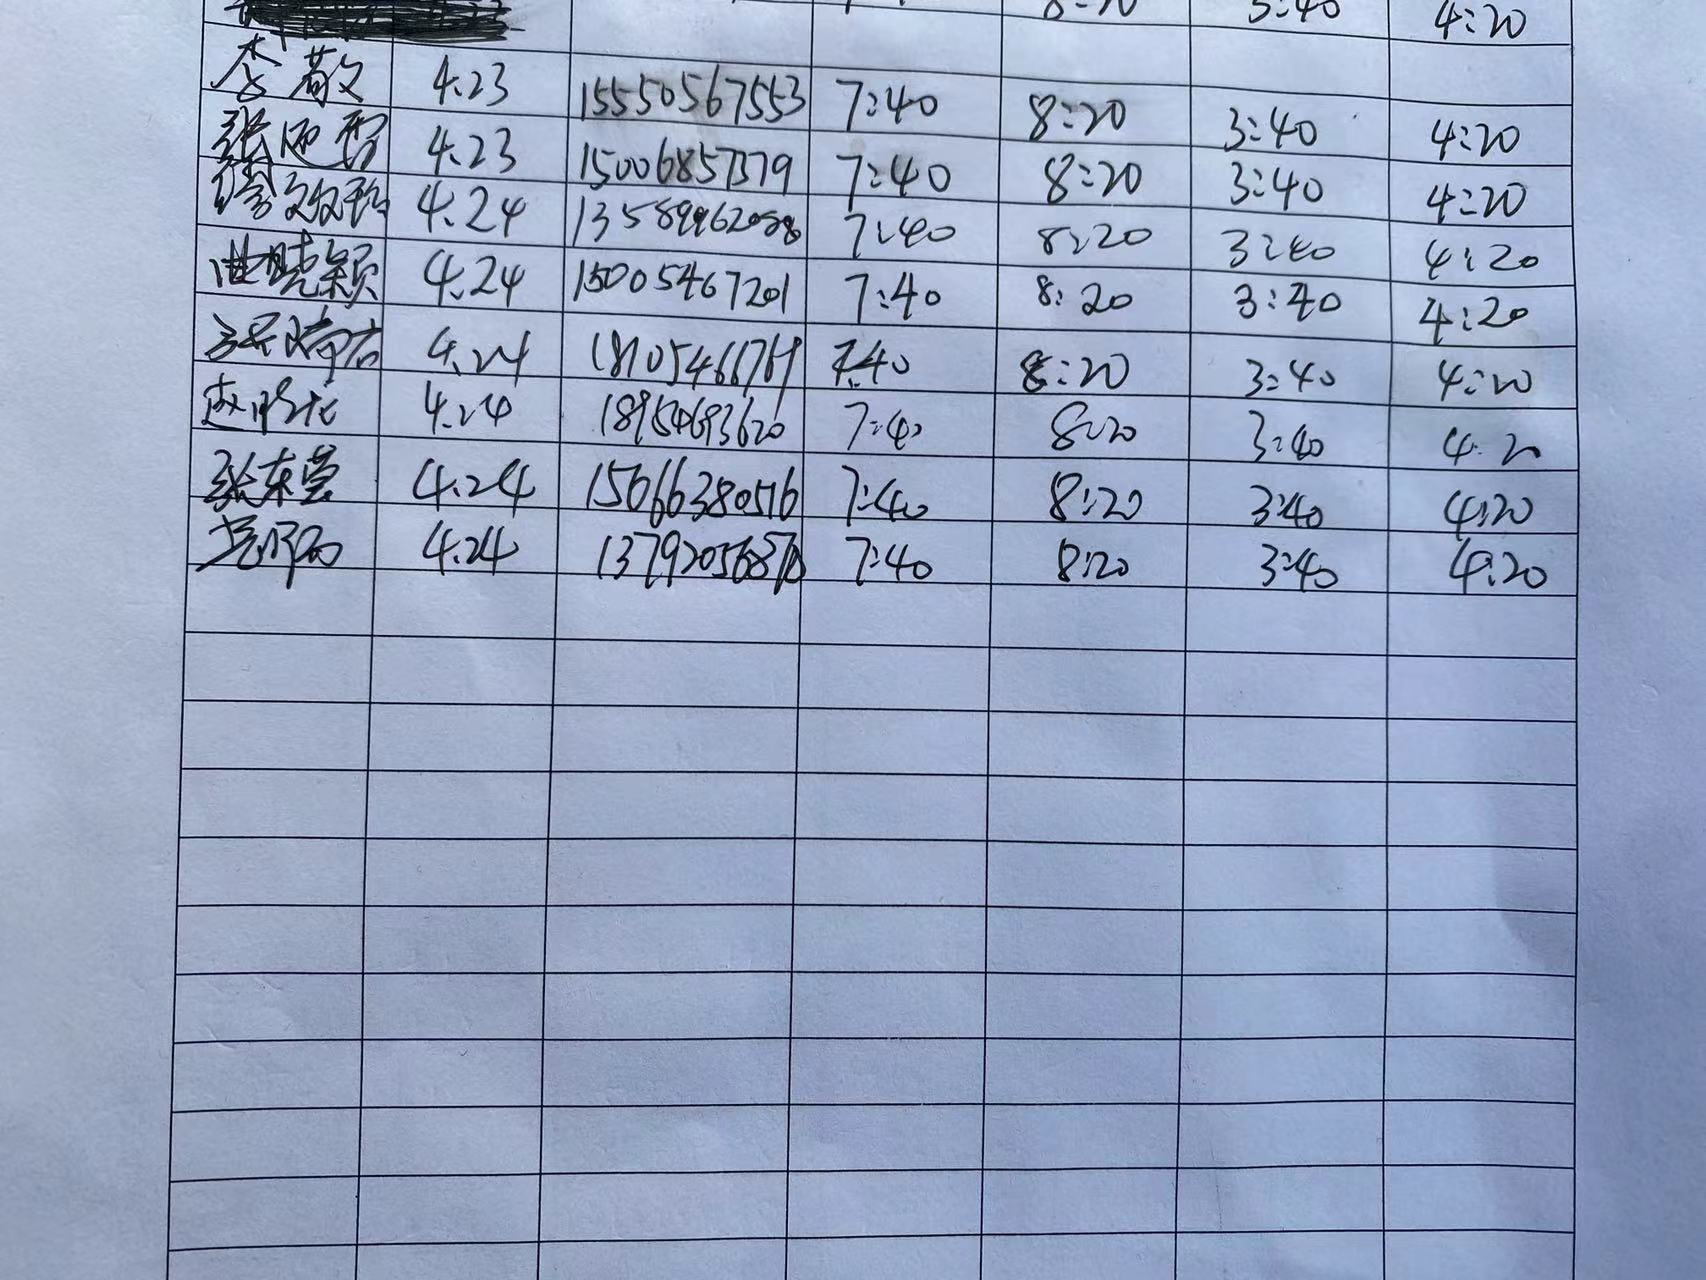 8:20 3:40 4:20
李敬 4.23 15550567553 7:40 8:20 3:40 4:20
4.23 15006857579 7:40 8:20 3:40 4:20
4.24 7:40 8:20 3:40 4:20
曲晓颖 4.24 15005467201 7:40 8:20 3:40 4:20
4.24 7:40 8:20 3:40 4:20
4.24 18954693620 7:40 8:20 3:40 4:20
张东营 4.24 15666380516 7:40 8:20 3:40 4:20
4.24 7:40 8:20 3:40 4:20